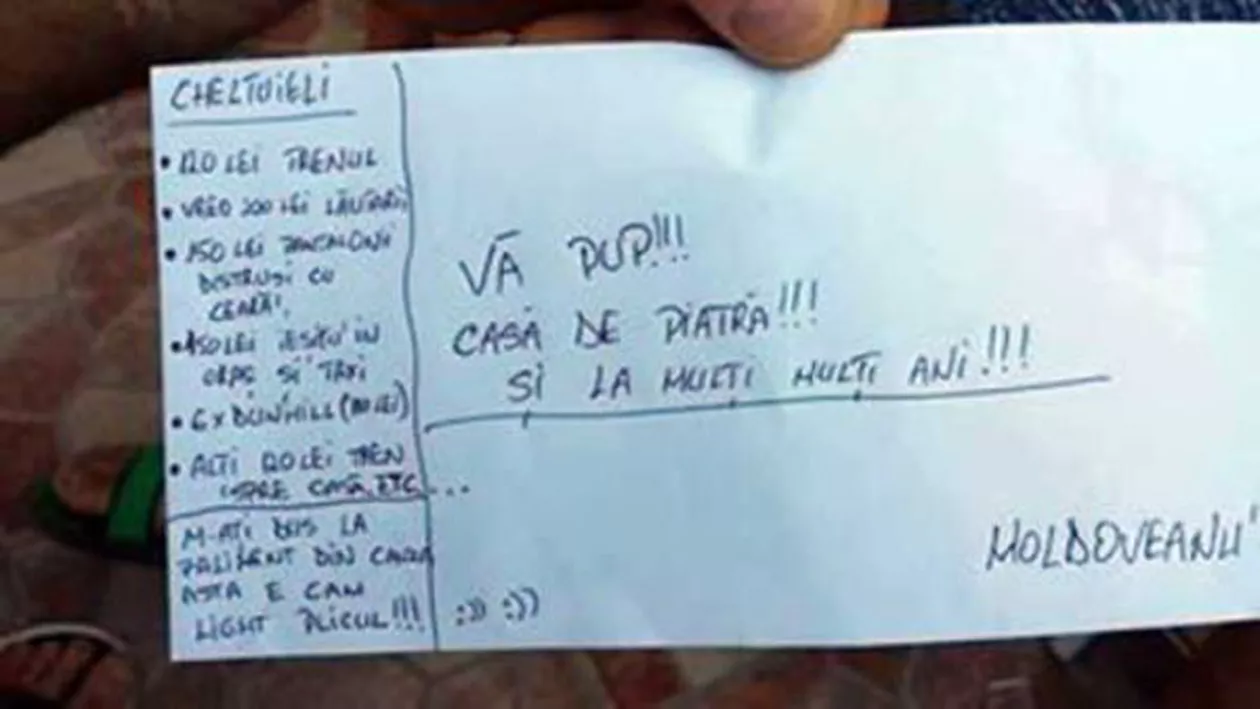 CHELTUIELI
• 120 LEI TRENUL
• VREO 200 LEI LĂUTARI
• 150 LEI PANTALONI
DISTRUȘI CU
CEARĂ!
• 150 LEI IEȘIT ÎN
ORAȘ SI TAXI
• 6 X DUNHILL ( LEI)
• ALTI 120 LEI TREN
SPRE CASĂ, ETC...
M-ATI DUS LA
FALIMENT DIN CAUZA
ASTA E CAM
LIGHT PLICUL!!! :)) :))
VĂ PUP!!!
CASĂ DE PIATRĂ!!!
SI LA MULTI MULTI ANI!!!
MOLDOVEANU'